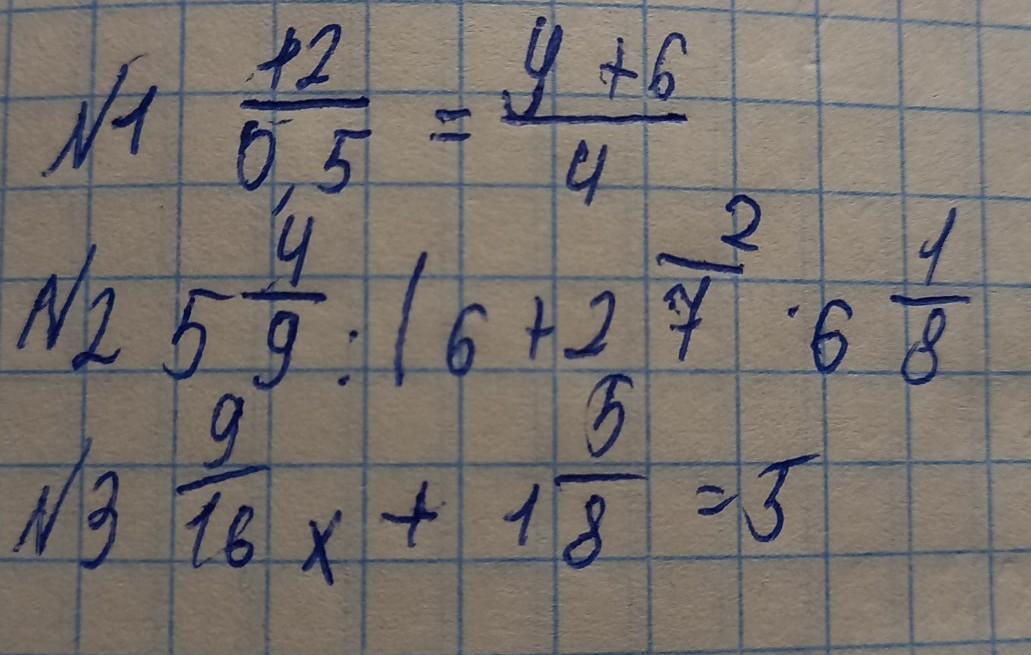 N1 12/0,5 = y+6/4
N2 5 4/9 : (6 + 2 2/7 · 6 1/8
N3 9/16 x + 1 5/8 = 5